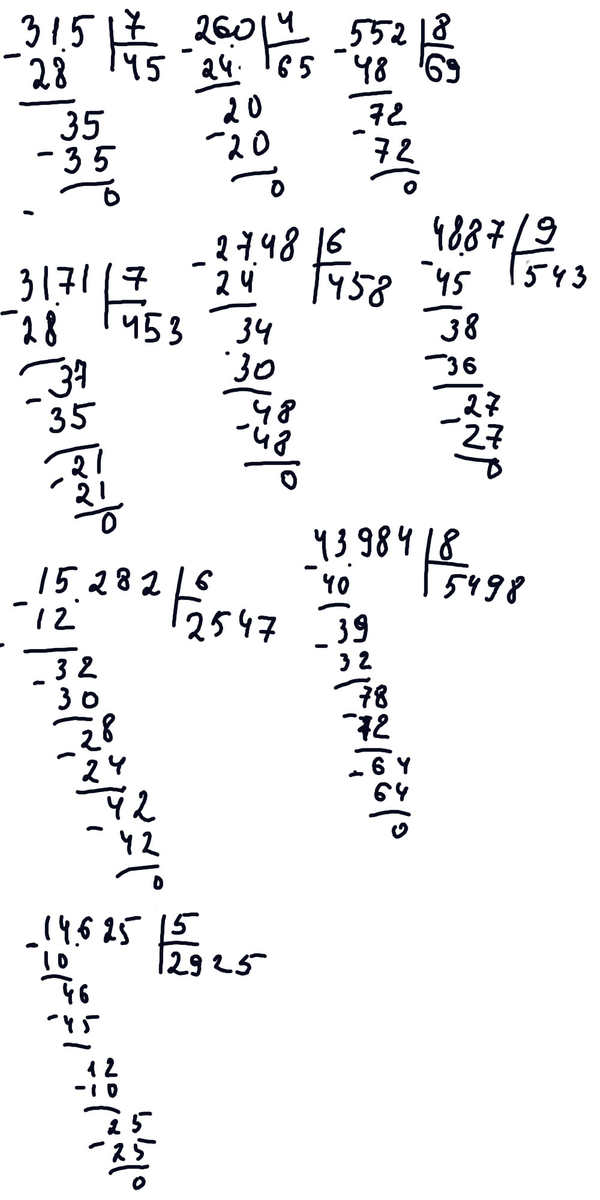 31.5 7
- 28 45
35
- 35
0
26.0 4
- 24 65
20
- 20
0
552 8
- 48 69
72
- 72
0
-
31.71 7
- 28 453
37
- 35
21
- 21
0
27.48 6
- 24 458
34
30
48
- 48
0
48.87 9
- 45 543
38
- 36
27
- 27
0
15.282 6
- 12 2547
32
- 30
28
- 24
42
- 42
0
43.984 8
- 40 5498
39
- 32
78
- 72
64
- 64
0
14.625 5
- 10 2925
46
- 45
12
- 10
25
- 25
0